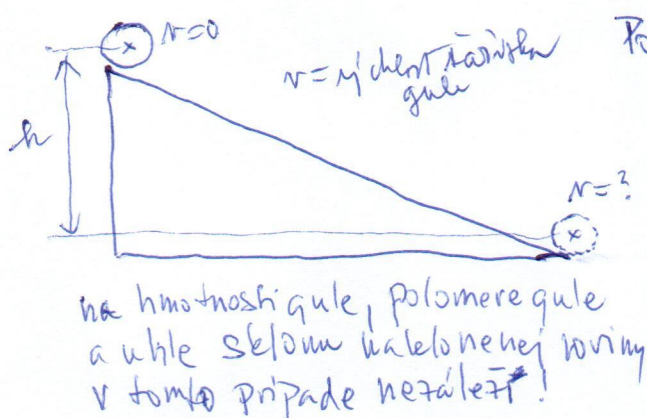 v=0
v = rýchlosť ťažiska
gule
h
v=?
na hmotnosti gule, polomere gule
a uhle sklonu naklonenej roviny
v tomto prípade nezáleží!